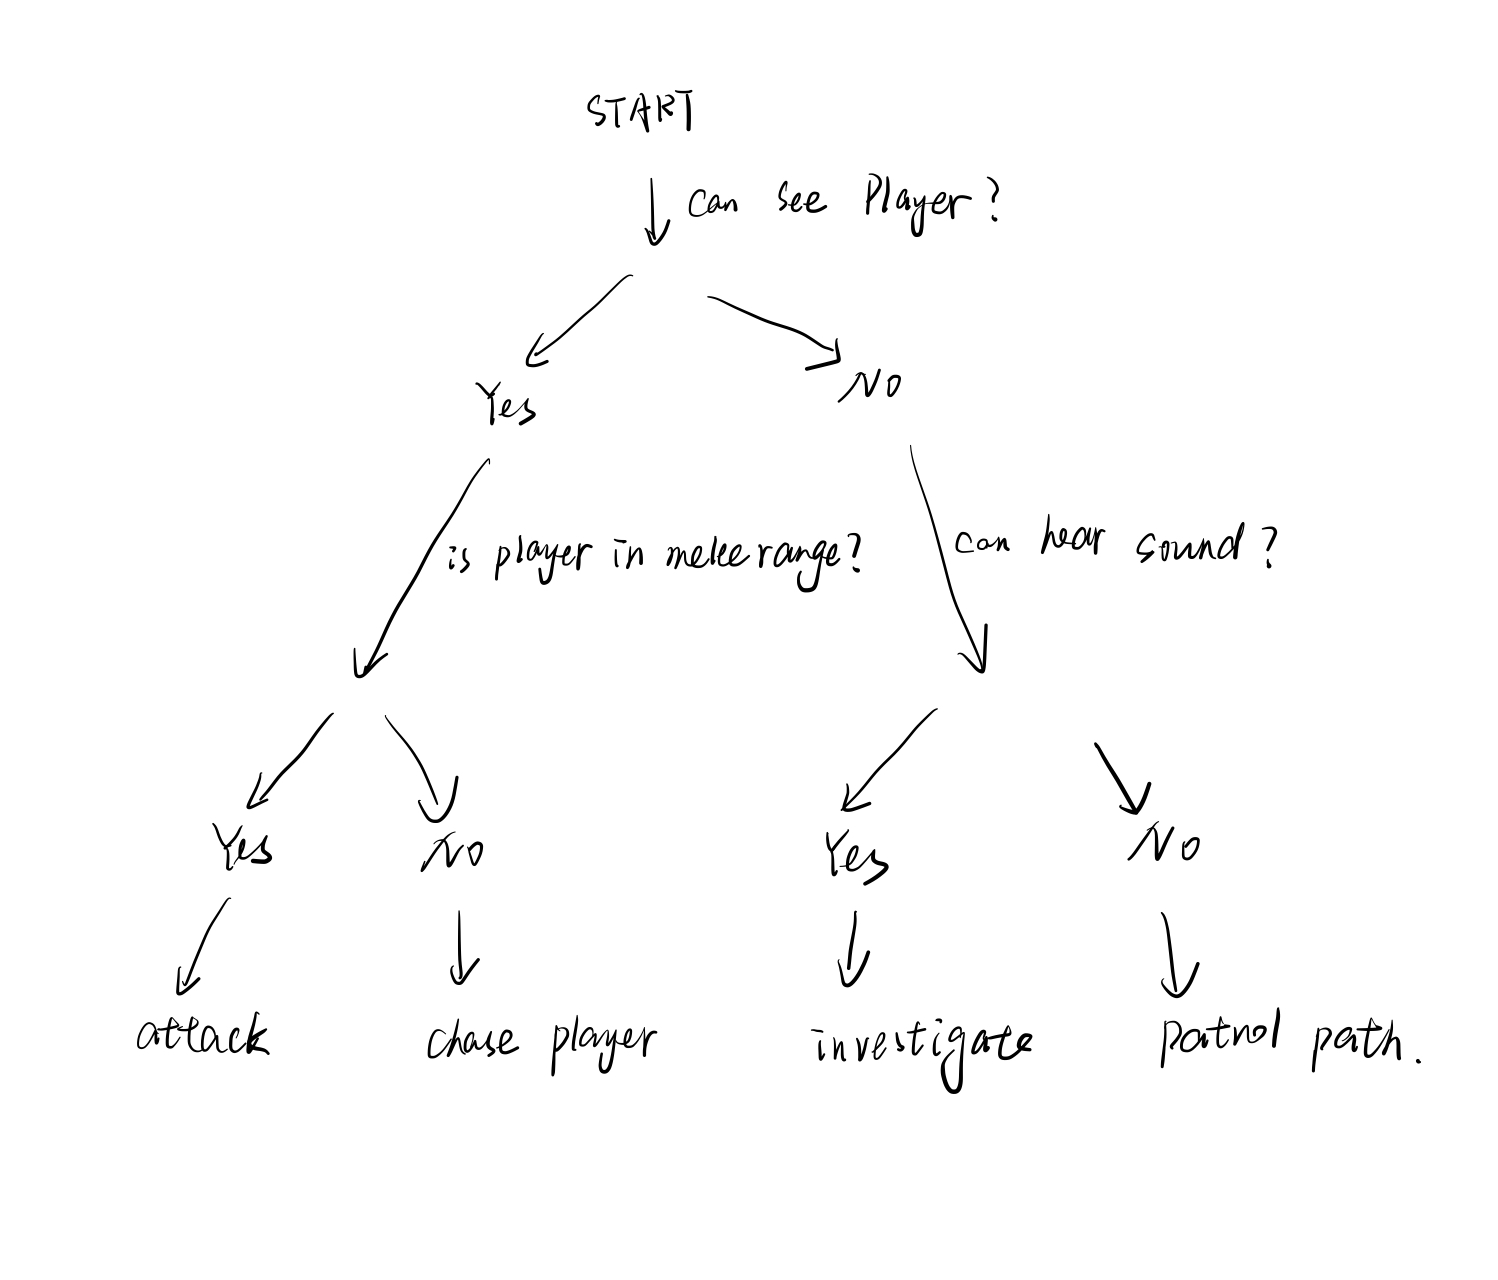 START
Can See Player?
Yes
No
is player in melee range?
can hear sound?
Yes
No
Yes
No
attack
chase player
investigate
patrol path.